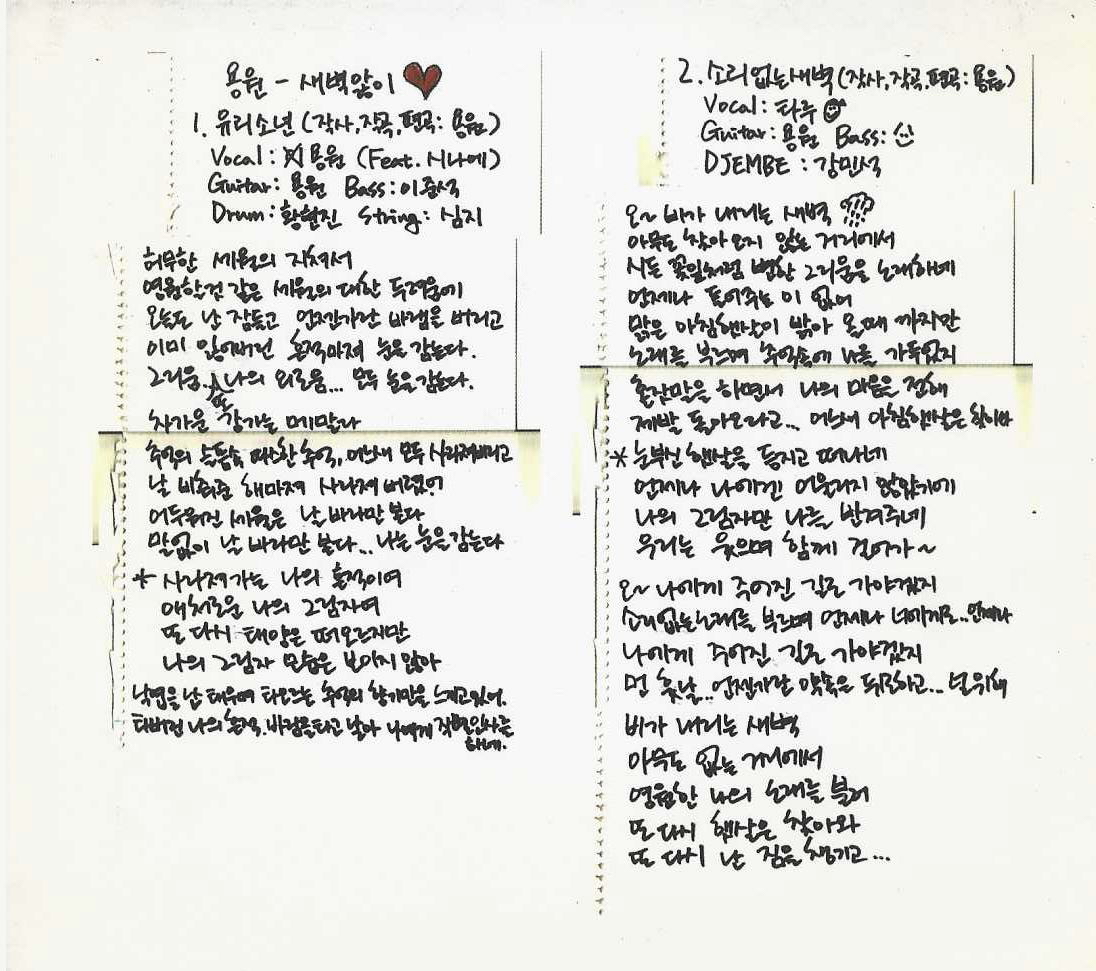 용원 - 새벽앓이
1. 유리소년 (작사, 작곡, 편곡: 용원)
Vocal: 용원 (Feat. 시나에)
Guitar: 용원 Bass: 이준석
Drum: 황현진 String: 심지
허무한 세월의 지쳐서
영원할것 같은 세월의 대한 두려움에
오늘도 난 잠들고 언젠가란 바램을 버리고
이미 잃어버린 흔적마져 눈을 감는다.
그리움.. 또 나의 외로움... 모두 눈을 감는다.
차가운 강가는 메말라
추억의 숨들속 따스한 추억, 어느새 모두 사라져버리고
날 비춰준 해마져 사라져 버렸어
어두워진 세월은 날 바라만 본다
말없이 날 바라만 본다... 나는 눈을 감는다
* 사라져가는 나의 흔적이여
애처로운 나의 그림자여
또 다시 태양은 떠오르지만
나의 그림자 모습은 보이지 않아
낙엽을 난 태우며 타오르는 추억의 향기만을 느끼고있어.
타버린 나의 흔적. 바람을타고 날아 나에게 작별인사를
하네.
2. 소리없는새벽 (작사, 작곡, 편곡: 용원)
Vocal: 타루
Guitar: 용원 Bass:
DJEMBE : 강민석
오~ 비가 내리는 새벽
아무도 찾아오지 않는 거리에서
시든 꽃잎처럼 변한 그리움을 노래하네
언제나 들어주는 이 없어
맑은 아침햇살이 밝아 올때 까지만
노래를 부르며 추억속에 나를 가두었지
혼잣말을 하면서 나의 마음을 전해
제발 돌아오라고... 어느새 아침햇살은
* 눈부신 햇살을 등지고 떠나네
언제나 나에겐 어울리지 않았기에
나의 그림자만 나를 반겨주네
우리는 웃으며 함께 걸어가~
오~ 나에게 주어진 길로 가야겠지
소리없는노래를 부르며 언제나 너에게로.. 언제나
나에게 주어진 길로 가야겠지
먼 훗날.. 언젠가란 약속은 뒤로하고... 널위해
비가 내리는 새벽
아무도 없는 거리에서
영원한 나의 노래를 불러
또 다시 햇살은 찾아와
또 다시 난 짐을 챙기고...